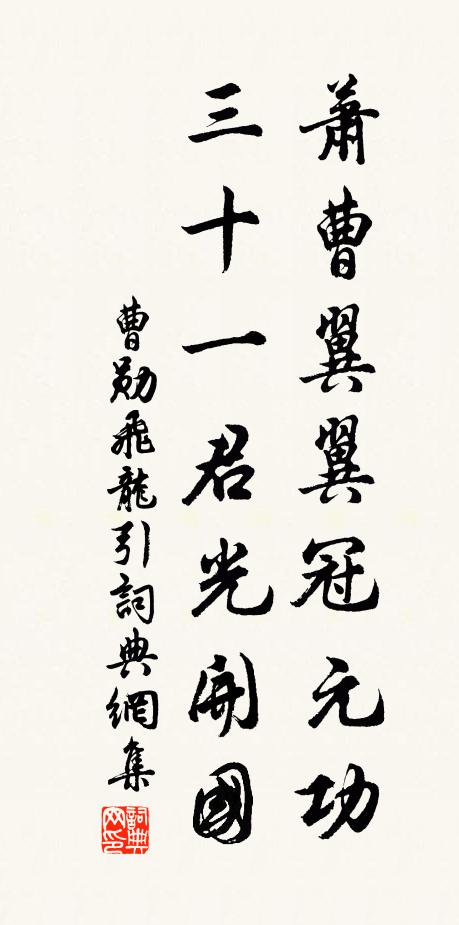 蕭曹翼翼冠元功
三十一君光開國
曹勛飛龍引詞典網集
詞典网印